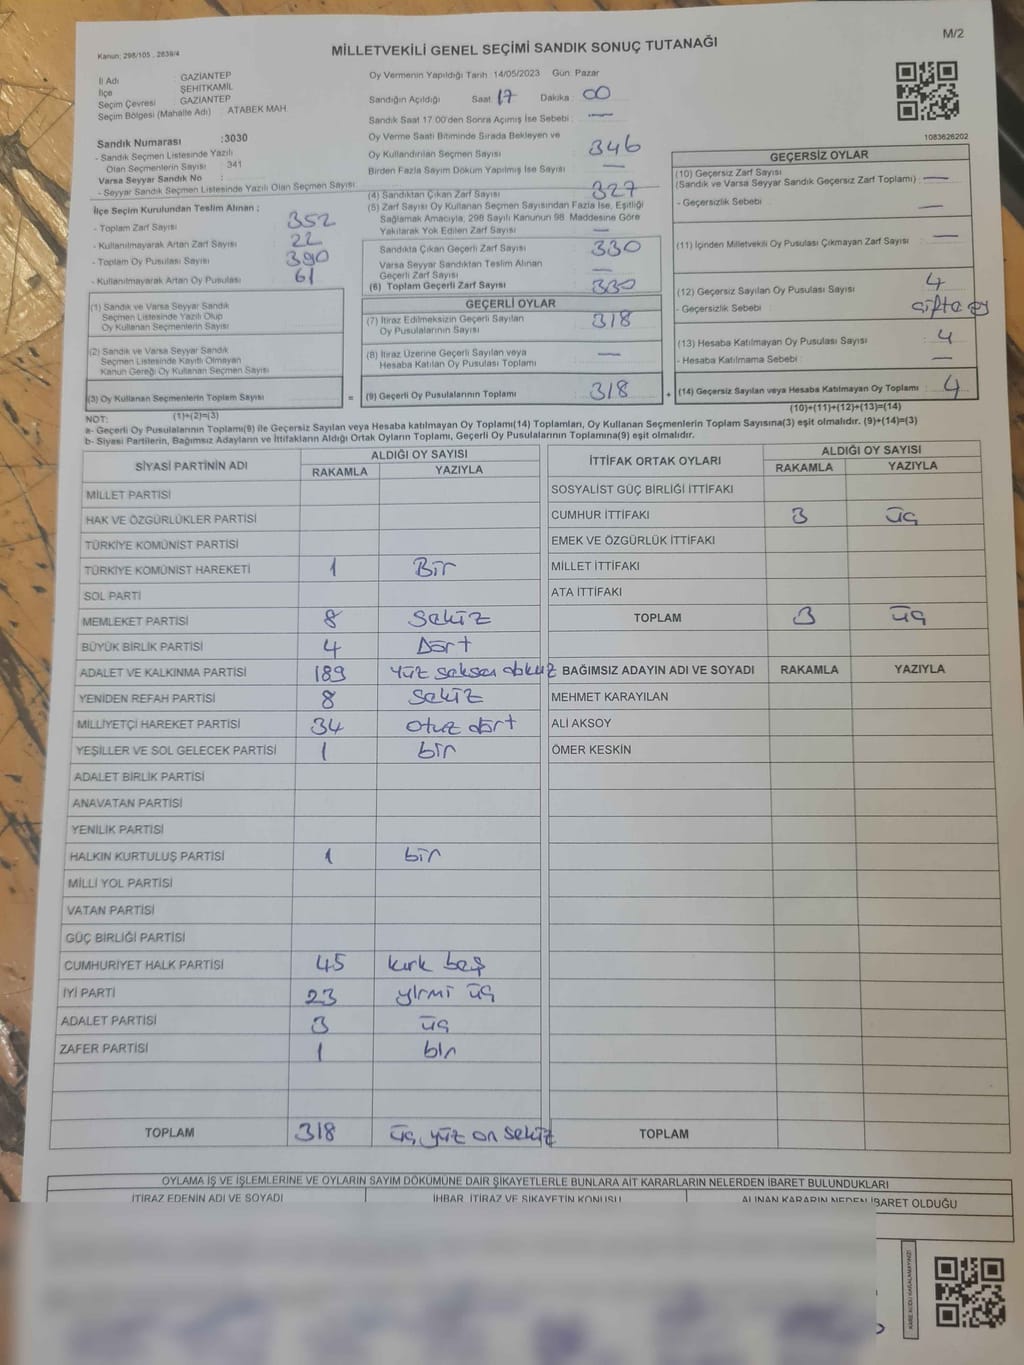 Kanun: 298/105 , 2839/4
MİLLETVEKİLİ GENEL SEÇİMİ SANDIK SONUÇ TUTANAĞI
M/2
İl Adı : GAZİANTEP
İlçe : ŞEHİTKAMİL
Seçim Çevresi : GAZİANTEP
Seçim Bölgesi (Mahalle Adı) : ATABEK MAH.
Sandık Numarası :3030
- Sandık Seçmen Listesinde Yazılı
Olan Seçmenlerin Sayısı : 341
Varsa Seyyar Sandık No :
- Seyyar Sandık Seçmen Listesinde Yazılı Olan Seçmen Sayısı:
İlçe Seçim Kurulundan Teslim Alınan ;
- Toplam Zarf Sayısı : 352
- Kullanılmayarak Artan Zarf Sayısı : 22
- Toplam Oy Pusulası Sayısı : 390
- Kullanılmayarak Artan Oy Pusulası : 61
(1) Sandık ve Varsa Seyyar Sandık
Seçmen Listesinde Yazılı Olup
Oy Kullanan Seçmenlerin Sayısı
(2) Sandık ve Varsa Seyyar Sandık
Seçmen Listesinde Kayıtlı Olmayan
Kanun Gereği Oy Kullanan Seçmen Sayısı
(3) Oy Kullanan Seçmenlerin Toplam Sayısı
(1)+(2)=(3)
Oy Vermenin Yapıldığı Tarih :14/05/2023 Gün: Pazar
Sandığın Açıldığı Saat: 17 Dakika : 00
Sandık Saat 17.00'den Sonra Açılmış İse Sebebi : —
Oy Verme Saati Bitiminde Sırada Bekleyen ve
Oy Kullandırılan Seçmen Sayısı : 346
Birden Fazla Sayım Döküm Yapılmış İse Sayısı : —
(4) Sandıktan Çıkan Zarf Sayısı : 327
(5) Zarf Sayısı Oy Kullanan Seçmen Sayısından Fazla İse, Eşitliği
Sağlamak Amacıyla, 298 Sayılı Kanunun 98. Maddesine Göre
Yakılarak Yok Edilen Zarf Sayısı : —
Sandıkta Çıkan Geçerli Zarf Sayısı : 330
Varsa Seyyar Sandıktan Teslim Alınan
Geçerli Zarf Sayısı : —
(6) Toplam Geçerli Zarf Sayısı : 330
GEÇERLİ OYLAR
(7) İtiraz Edilmeksizin Geçerli Sayılan
Oy Pusulalarının Sayısı : 318
(8) İtiraz Üzerine Geçerli Sayılan veya
Hesaba Katılan Oy Pusulası Toplamı : —
= (9) Geçerli Oy Pusulalarının Toplamı : 318
1083626202
GEÇERSİZ OYLAR
(10) Geçersiz Zarf Sayısı : —
(Sandık ve Varsa Seyyar Sandık Geçersiz Zarf Toplamı)
- Geçersizlik Sebebi : —
(11) İçinden Milletvekili Oy Pusulası Çıkmayan Zarf Sayısı : —
(12) Geçersiz Sayılan Oy Pusulası Sayısı : 4
- Geçersizlik Sebebi : çifte oy
(13) Hesaba Katılmayan Oy Pusulası Sayısı : 4
- Hesaba Katılmama Sebebi : —
+ (14) Geçersiz Sayılan veya Hesaba Katılmayan Oy Toplamı : 4
(10)+(11)+(12)+(13)=(14)
NOT:
a- Geçerli Oy Pusulalarının Toplamı(9) ile Geçersiz Sayılan veya Hesaba katılmayan Oy Toplamı(14) Toplamları, Oy Kullanan Seçmenlerin Toplam Sayısına(3) eşit olmalıdır. (9)+(14)=(3)
b- Siyasi Partilerin, Bağımsız Adayların ve İttifakların Aldığı Ortak Oyların Toplamı, Geçerli Oy Pusulalarının Toplamına(9) eşit olmalıdır.
SİYASİ PARTİNİN ADI ALDIĞI OY SAYISI
RAKAMLA YAZIYLA
MİLLET PARTİSİ
HAK VE ÖZGÜRLÜKLER PARTİSİ
TÜRKİYE KOMÜNİST PARTİSİ
TÜRKİYE KOMÜNİST HAREKETİ 1 Bir
SOL PARTİ
MEMLEKET PARTİSİ 8 Sekiz
BÜYÜK BİRLİK PARTİSİ 4 Dört
ADALET VE KALKINMA PARTİSİ 189 Yüz seksen dokuz
YENİDEN REFAH PARTİSİ 8 Sekiz
MİLLİYETÇİ HAREKET PARTİSİ 34 otuz dört
YEŞİLLER VE SOL GELECEK PARTİSİ 1 bir
ADALET BİRLİK PARTİSİ
ANAVATAN PARTİSİ
YENİLİK PARTİSİ
HALKIN KURTULUŞ PARTİSİ 1 bir
MİLLİ YOL PARTİSİ
VATAN PARTİSİ
GÜÇ BİRLİĞİ PARTİSİ
CUMHURİYET HALK PARTİSİ 45 kırk beş
İYİ PARTİ 23 yirmi üç
ADALET PARTİSİ 3 üç
ZAFER PARTİSİ 1 bir
TOPLAM 318 üç yüz on sekiz
İTTİFAK ORTAK OYLARI ALDIĞI OY SAYISI
RAKAMLA YAZIYLA
SOSYALİST GÜÇ BİRLİĞİ İTTİFAKI
CUMHUR İTTİFAKI 3 üç
EMEK VE ÖZGÜRLÜK İTTİFAKI
MİLLET İTTİFAKI
ATA İTTİFAKI
TOPLAM 3 üç
BAĞIMSIZ ADAYIN ADI VE SOYADI RAKAMLA YAZIYLA
MEHMET KARAYILAN
ALİ AKSOY
ÖMER KESKİN
TOPLAM
OYLAMA İŞ VE İŞLEMLERİNE VE OYLARIN SAYIM DÖKÜMÜNE DAİR ŞİKAYETLERLE BUNLARA AİT KARARLARIN NELERDEN İBARET BULUNDUKLARI
İTİRAZ EDENİN ADI VE SOYADI İHBAR, İTİRAZ VE ŞİKAYETİN KONUSU ALINAN KARARIN NEDEN İBARET OLDUĞU